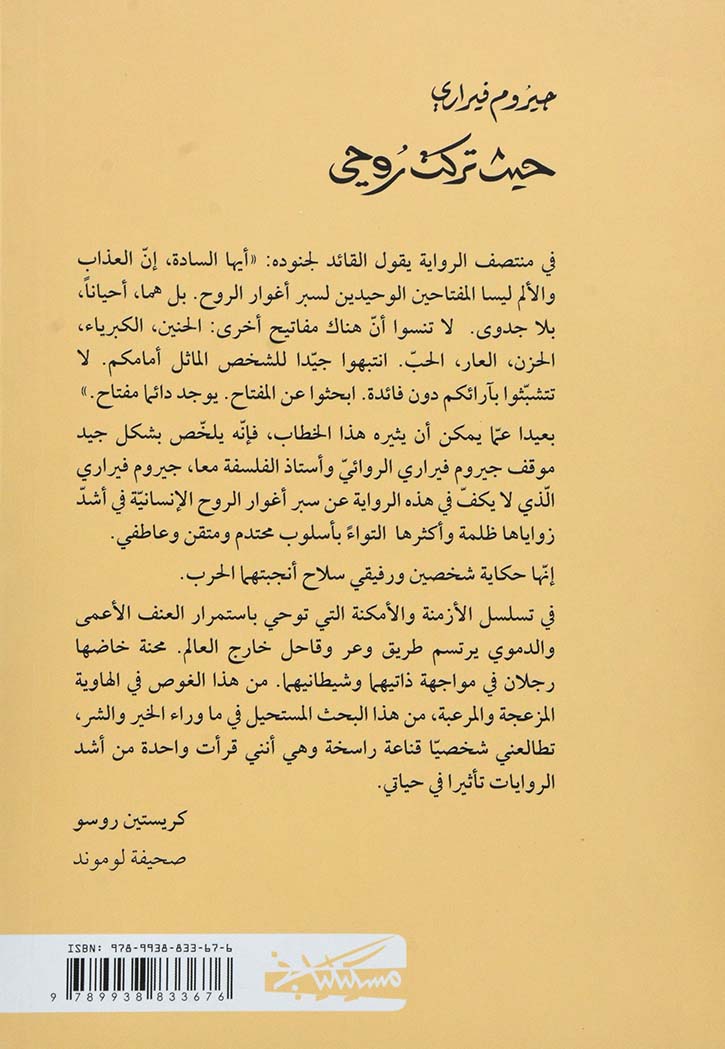 جيرُوم فيراري
حيث تركت رُوحي
في منتصف الرواية يقول القائد لجنوده: «أيها السادة، إنّ العذاب
والألم ليسا المفتاحين الوحيدين لسبر أغوار الروح. بل هما، أحياناً،
بلا جدوى. لا تنسوا أنّ هناك مفاتيح أخرى: الحنين، الكبرياء،
الحزن، العار، الحبّ. انتبهوا جيّدا للشخص الماثل أمامكم. لا
تتشبّثوا بآرائكم دون فائدة. ابحثوا عن المفتاح. يوجد دائما مفتاح.»
بعيدا عمّا يمكن أن يثيره هذا الخطاب، فإنّه يلخّص بشكل جيد
موقف جيروم فيراري الروائيّ وأستاذ الفلسفة معا، جيروم فيراري
الّذي لا يكفّ في هذه الرواية عن سبر أغوار الروح الإنسانيّة في أشدّ
زواياها ظلمة وأكثرها التواءً بأسلوب محتدم ومتقن وعاطفي.
إنّها حكاية شخصين ورفيقي سلاح أنجبتهما الحرب.
في تسلسل الأزمنة والأمكنة التي توحي باستمرار العنف الأعمى
والدموي يرتسم طريق وعر وقاحل خارج العالم. محنة خاضها
رجلان في مواجهة ذاتيهما وشيطانيهما. من هذا الغوص في الهاوية
المزعجة والمرعبة، من هذا البحث المستحيل في ما وراء الخير والشر،
تطالعني شخصيّا قناعة راسخة وهي أنني قرأت واحدة من أشد
الروايات تأثيرا في حياتي.
كريستين روسو
صحيفة لوموند
ISBN: 978-9938-833-67-6
9 789938 833676
مسكيلياني